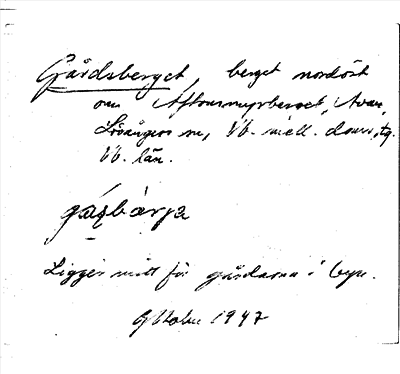 Gårdsberget, berget nordöst
om Aftonmyrberget, Avan,
Lövångers sn, Vb. mell. doms.
Vb. län.
Ligger mitt för gårdarna i byn.
Oktober 1947